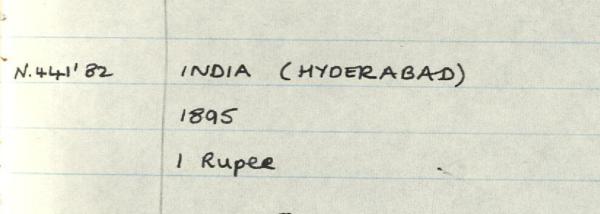 N.441'82 INDIA (HYDERABAD)
1895
1 Rupee